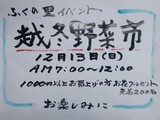 ふくの里イベント
越冬野菜市
12月13日(日)
AM7:00~12:00
1000円以上お買上げの方お花プレゼント
先着200名
お楽しみに